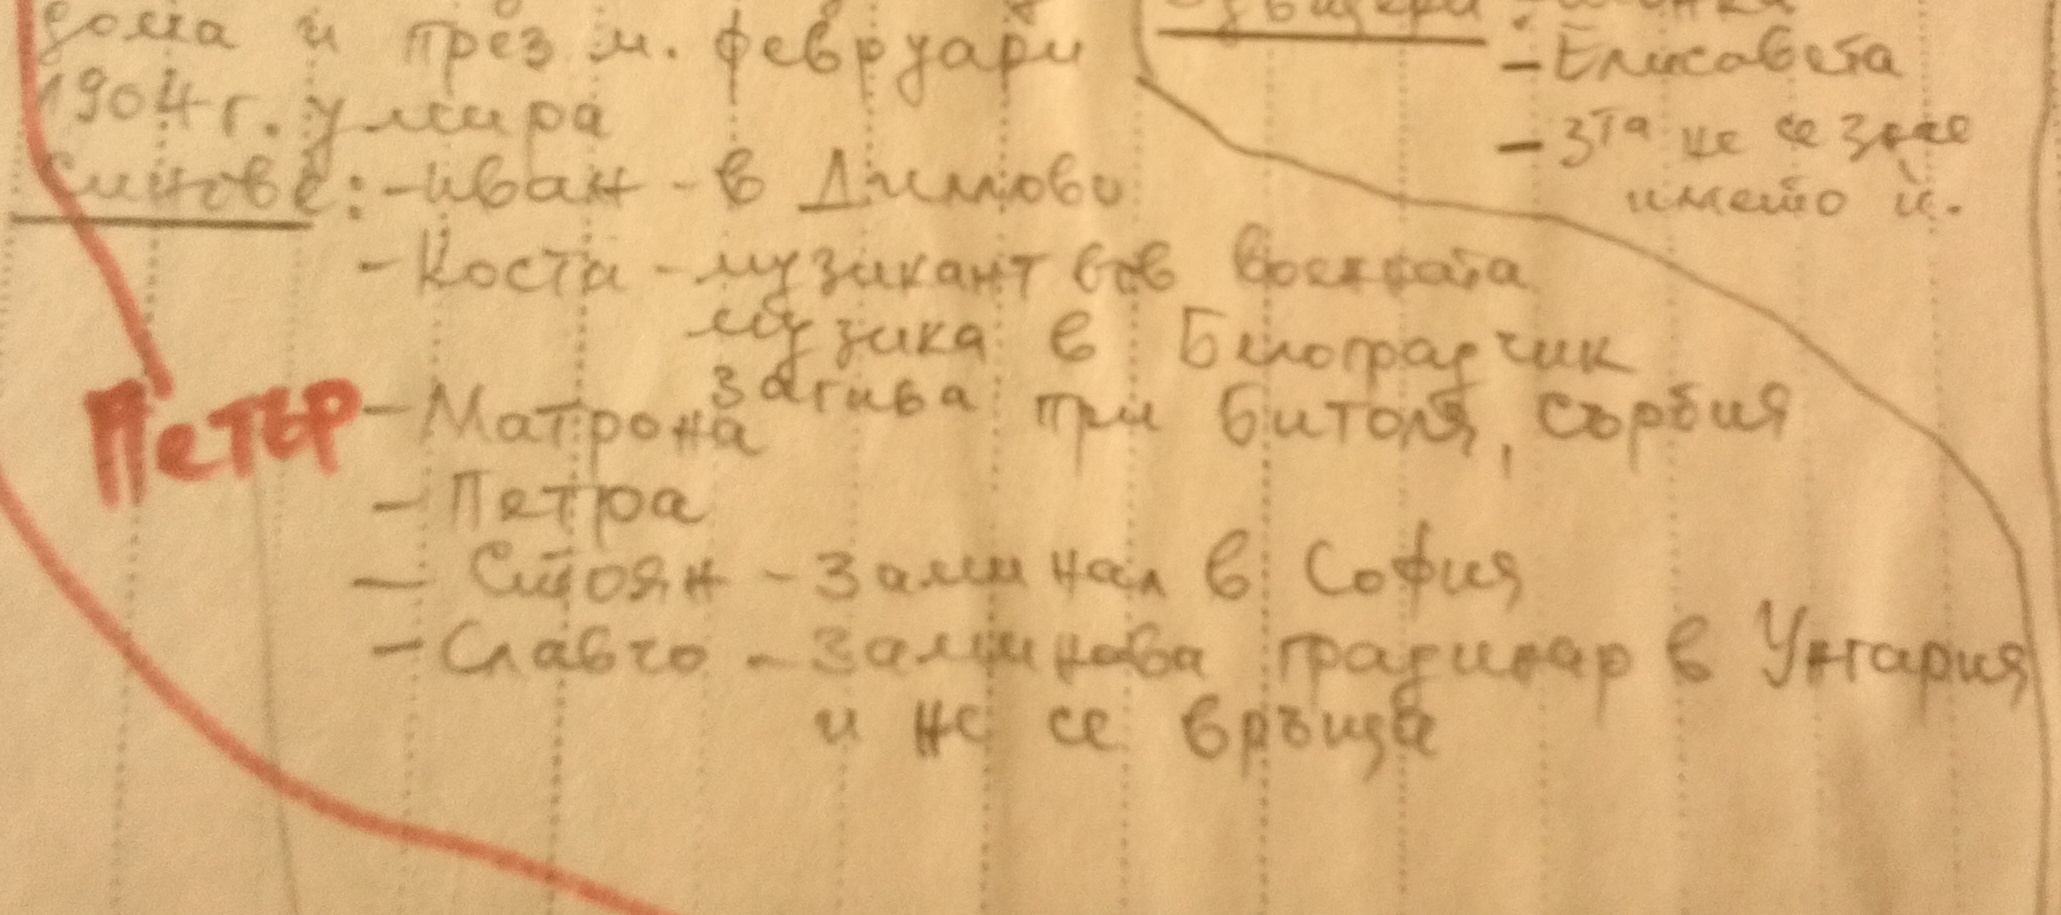 дома и през м. февруари
1904 г. умира
Синове: - Иван - в Димово
- Коста - музикант във военната
музика в Белоградчик
загива при Битоля, сърбия
ПЕТЪР
- Матрона
- Петра
- Стоян - Заминал в София
- Славчо - Заминава градинар в Унгария
и не се връща
Дъщери:
- Елисавета
- 3та не се знае
името ѝ.